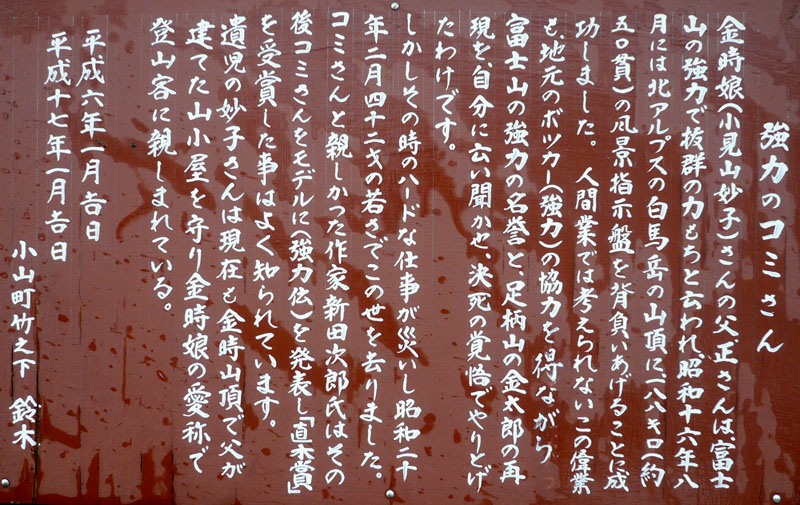 強力のコミさん
金時娘(小見山妙子)さんの父正さんは、富士
山の強力で抜群の力もちと云われ昭和十六年八
月には北アルプスの白馬岳の山頂に一八八キロ(約
五〇貫)の風景指示盤を背負いあげることに成
功しました。人間業では考えられないこの偉業
も、地元のボッカー(強力)の協力を得ながら
富士山の強力の名誉と、足柄山の金太郎の再
現を、自分に云い聞かせ、決死の覚悟でやりとげ
たわけです。
しかしその時のハードな仕事が災いし昭和二十
年二月四十二才の若さでこの世を去りました。
コミさんと親しかった作家新田次郎氏はその
後コミさんをモデルに(強力伝)を発表し「直木賞」
を受賞した事はよく知られています。
遺児の妙子さんは現在も金時山頂で父が
建てた山小屋を守り金時娘の愛称で
登山客に親しまれている。
平成六年一月吉日
平成十七年一月吉日
小山町竹之下 鈴木